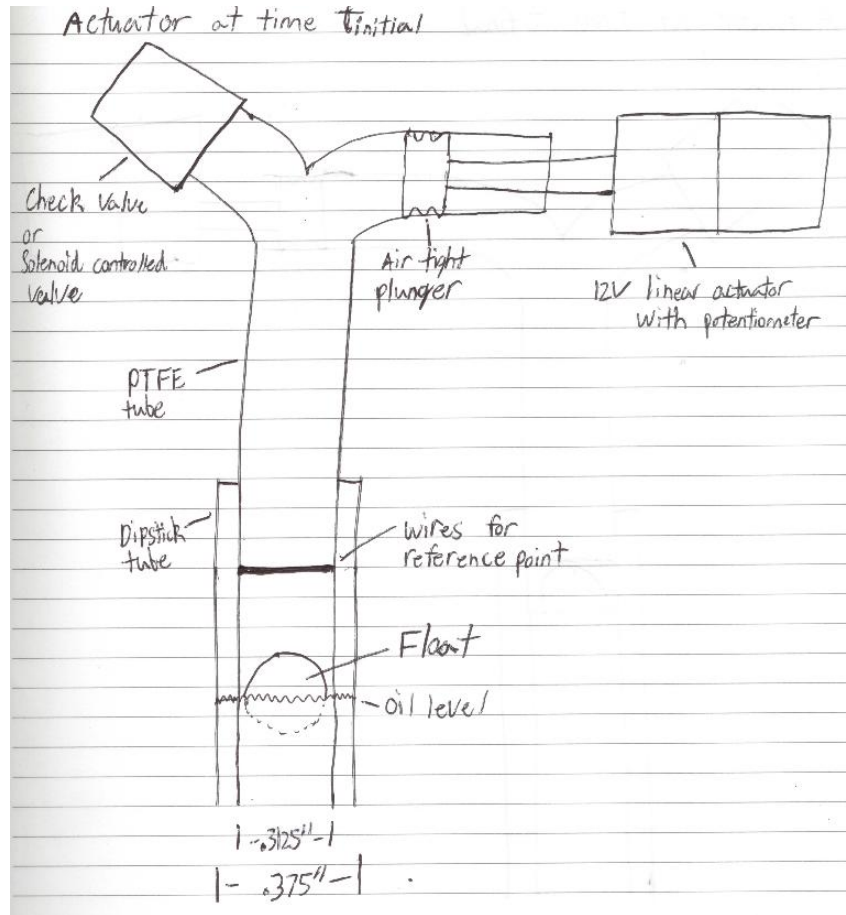 Actuator at time Tinitial
Check Valve
or
Solenoid controlled
valve
Air tight
plunger
12V linear actuator
with potentiometer
PTFE
tube
Dipstick
tube
wires for
reference point
Float
oil level
.3125"
.375"